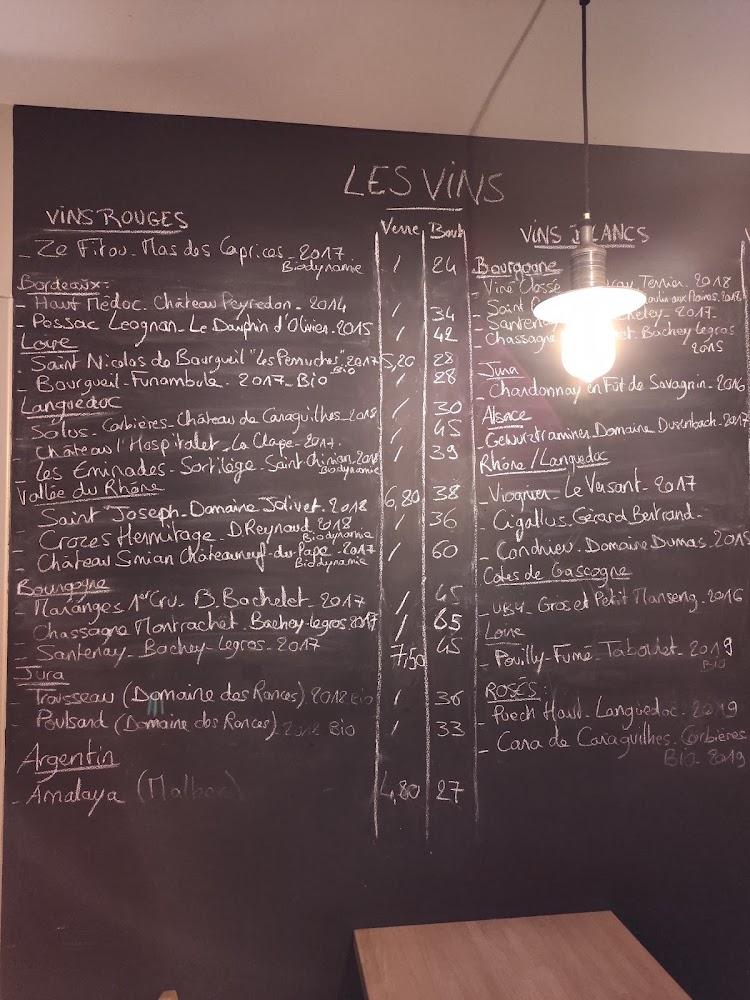 LES VINS
VINS ROUGES
Verre Bout
- Ze Fitou - Mas des Caprices - 2017
Biodynamie / 24
Bordeaux:
- Haut Médoc. Château Peyredon. 2014 / 34
- Possac Leognan - Le Dauphin d'Olivier. 2015 / 42
Loire
- Saint Nicolas de Bourgueil "Les Perruches" 2017 5,20 28
Bio
- Bourgueil - Funambule. 2017 - Bio / 28
Languedoc
- Solus - Corbières - Château de Caraguilhes - 2018 / 30
- Château l'Hospitalet - La Clape - 2017. / 45
- Les Eminades - Sortilège - Saint Chinian. 2018 / 39
Biodynamie
Vallée du Rhône
- Saint Joseph. Domaine Jolivet. 2018 6,80 38
- Crozes Hermitage. D. Reynaud 2018 / 36
Biodynamie
- Château Simian Châteauneuf-du-Pape - 2017 / 60
Biodynamie
Bourgogne
- Maranges 1er Cru. B. Bachelet - 2017 / 45
- Chassagne Montrachet. Bachey-Legros 2017 / 65
- Santenay - Bachey-Legros - 2017 7,50 45
Jura
- Trousseau (Domaine des Ronces) 2012 Bio / 36
- Poulsard (Domaine des Ronces) 2012 Bio / 33
Argentin
- Amalaya (Malbec) 4,80 27
VINS BLANCS
Bourgogne
- Viré Clessé Terrier. 2018
- Saint 2018
- Santenay 2017
- Chassagne Bachey Legros
2015
Jura
- Chardonnay en Fût de Savagnin - 2016
Alsace
- Gewurztraminer Domaine Dusenbach - 2017
Rhône / Languedoc
- Viognier - Le Versant - 2017
- Cigallus - Gérard Bertrand -
- Condrieu - Domaine Dumas - 2018
Cotes de Gascogne
- UBY. Gros et Petit Manseng. 2016
Loire
- Pouilly-Fumé - Tabordet - 2019
Bio
ROSÉS:
- Puech Haut - Languedoc - 2019
- Cara de Caraguilhes. Corbières
Bio - 2019